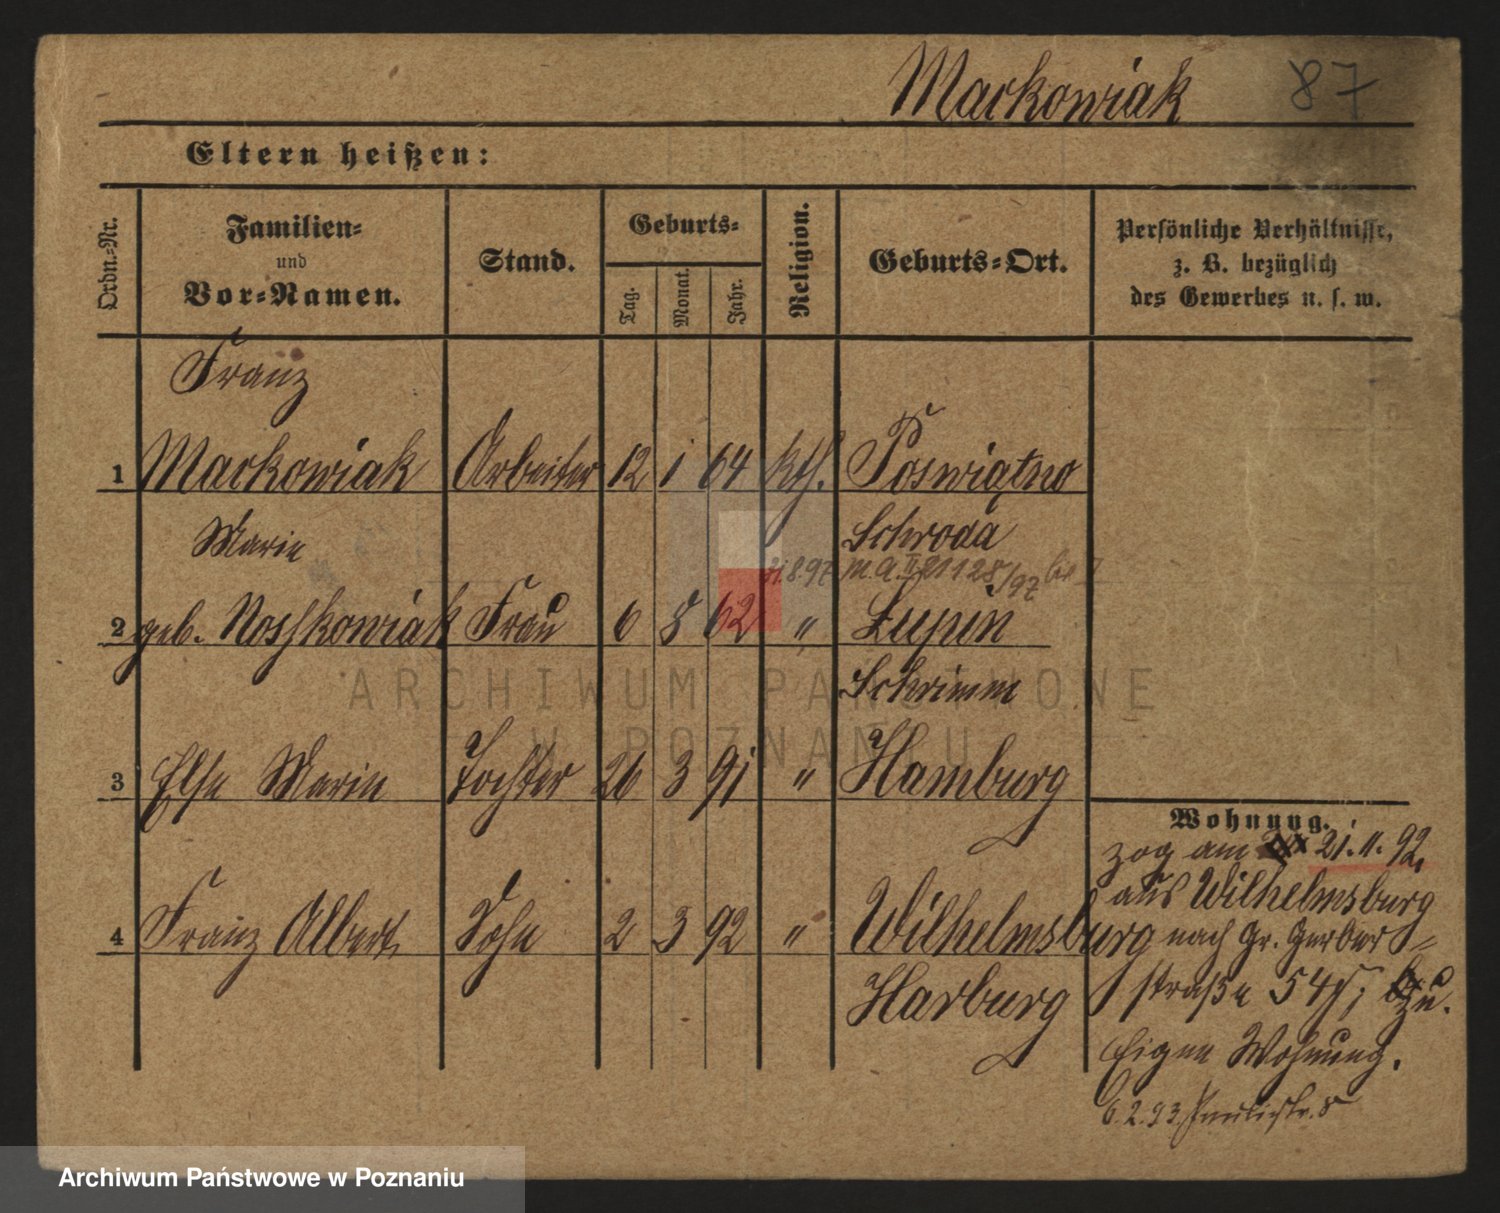 Markowiak 87
Eltern heißen:
Ordn.-Nr.
Familien-
und
Vor-Namen.
Stand.
Geburts-
Tag.
Monat.
Jahr.
Religion.
Geburts-Ort.
Persönliche Verhältnisse,
z. B. bezüglich
des Gewerbes u. s. w.
Franz
1 Markowiak Arbeiter 12 1 64 kth. Poswiątno
Marie Schroda
31.8.97 M.A. II 21128/97
2 geb. Noskowiak Frau 6 8 62 " Lupin
Schrimm
3 Else Marie Tochter 26 3 91 " Hamburg
4 Franz Albert Sohn 2 3 92 " Wilhelmsburg
Harburg
Wohnung.
zog am 21.11.92.
aus Wilhelmsburg
nach Gr. Gerber-
straße 54
Eigene Wohnung.
6.2.93. 8
ARCHIWUM PAŃSTWOWE
W POZNANIU
Archiwum Państwowe w Poznaniu